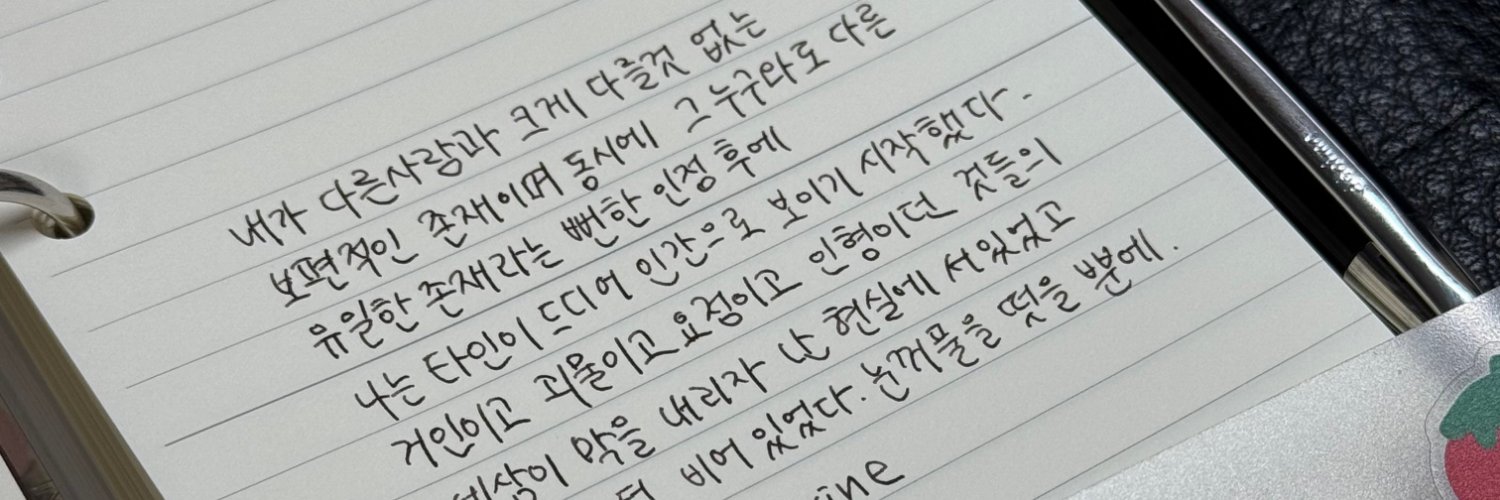 내가 다른사람과 크게 다를것 없는
보편적인 존재이며 동시에 그 누구와도 다른
유일한 존재라는 뻔한 인정 후에
나는 타인이 드디어 인간으로 보이기 시작했다.
거인이고 괴물이고 요정이고 인형이던 것들의
세상이 막을 내리자 난 현실에 서 있었고
비어 있었다. 눈꺼풀을 떴을 뿐에.